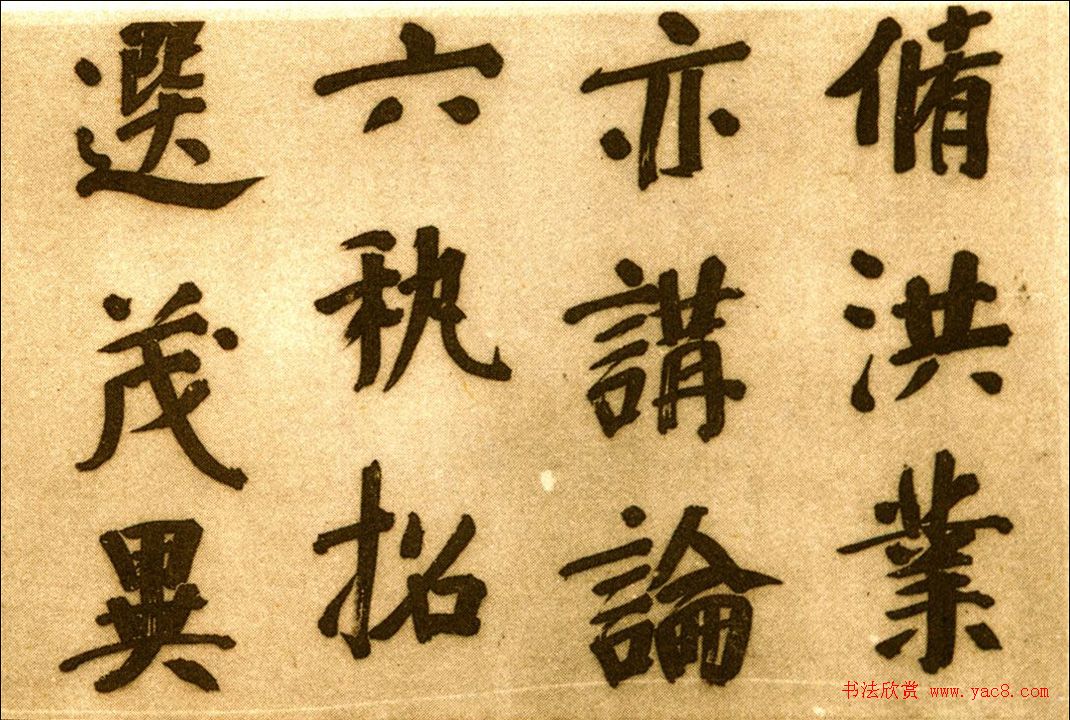 脩洪業
亦講論
六秇招
選茂異
书法欣赏 www.yac8.com